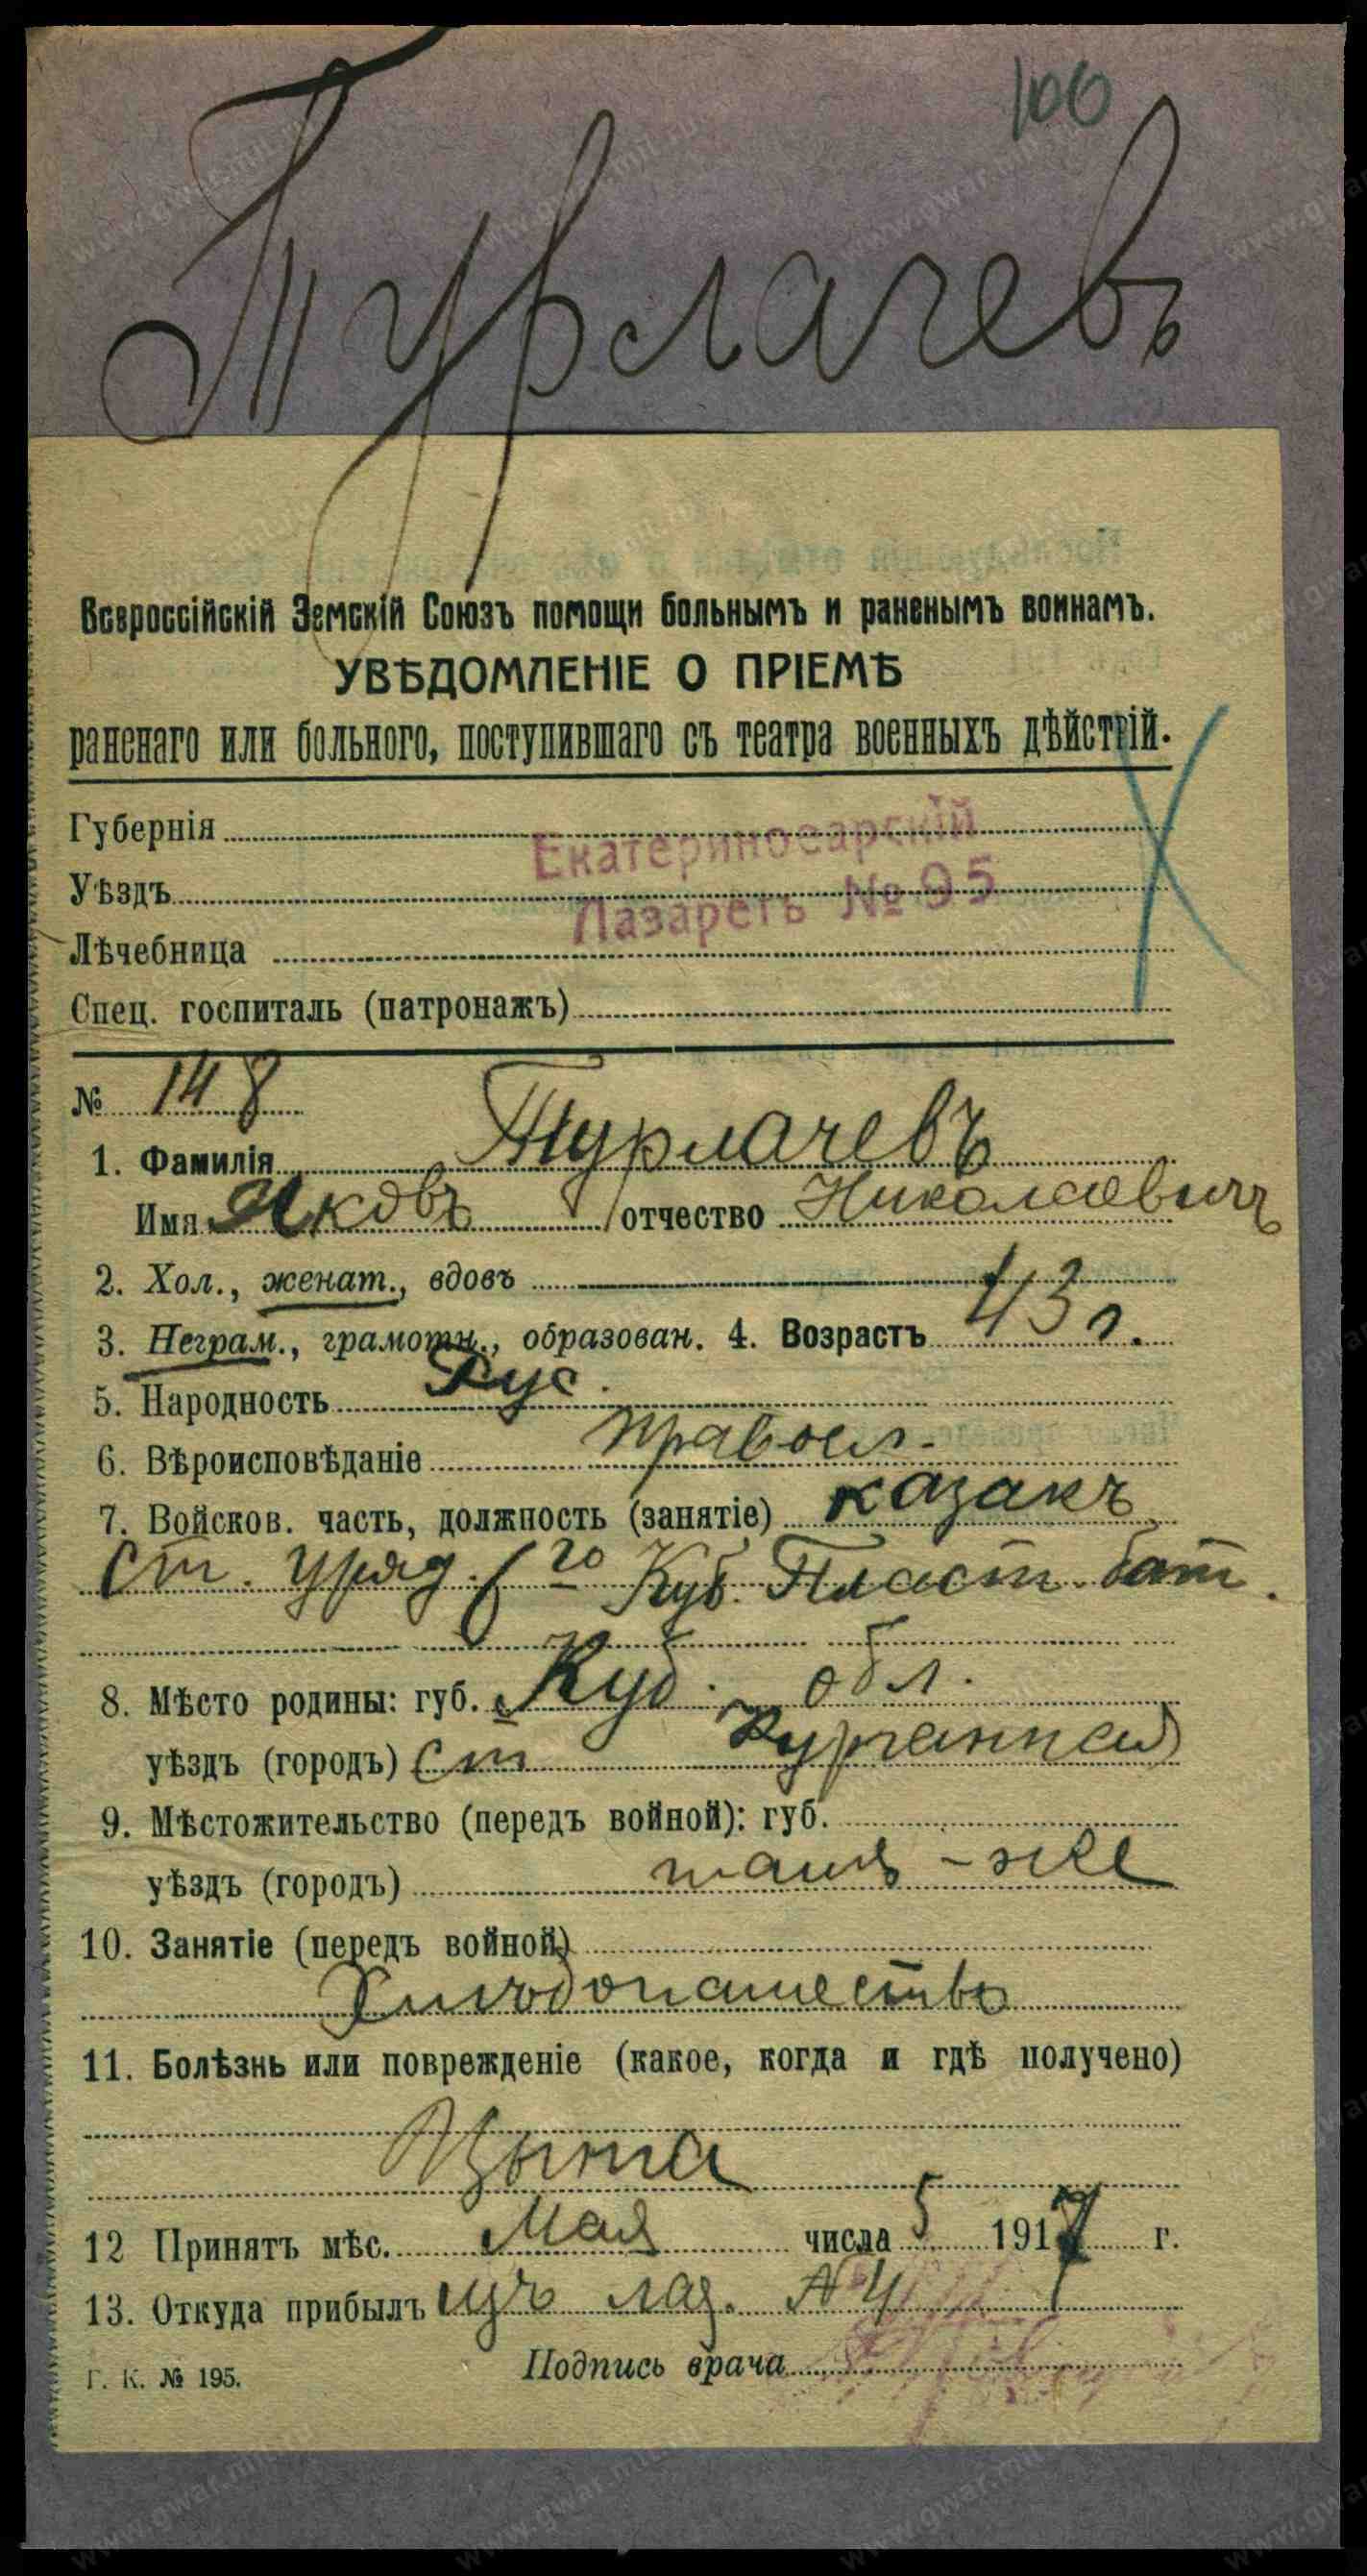 100
Турлачевъ
Всероссійскій Земскій Союзъ помощи больнымъ и раненымъ воинамъ.
УВѢДОМЛЕНІЕ О ПРІЕМѢ
раненаго или больного, поступившаго съ театра военныхъ дѣйствій.
Губернія
Екатеринодарскій
Уѣздъ
Лазаретъ № 95
Лѣчебница
Спец. госпиталь (патронажъ)
№ 148
1. Фамилія Турлачевъ
Имя Яковъ отчество Николаевичъ
2. Хол., женат., вдовъ
3. Неграм., грамотн., образован. 4. Возрастъ 43 л.
5. Народность Рус.
6. Вѣроисповѣданіе правосл.
7. Войсков. часть, должность (занятіе) казакъ
ст. уряд. 6го Куб. Пласт. бат.
8. Мѣсто родины: губ. Куб. обл.
уѣздъ (городъ) ст Курганная
9. Мѣстожительство (передъ войной): губ.
уѣздъ (городъ) тамъ-же
10. Занятіе (передъ войной)
Хлѣбопашество
11. Болѣзнь или поврежденіе (какое, когда и гдѣ получено)
Цынга
12 Принятъ мѣс. Мая числа 5 1917 г.
13. Откуда прибылъ изъ лаз. № 4
Подпись врача
Г. К. № 195.